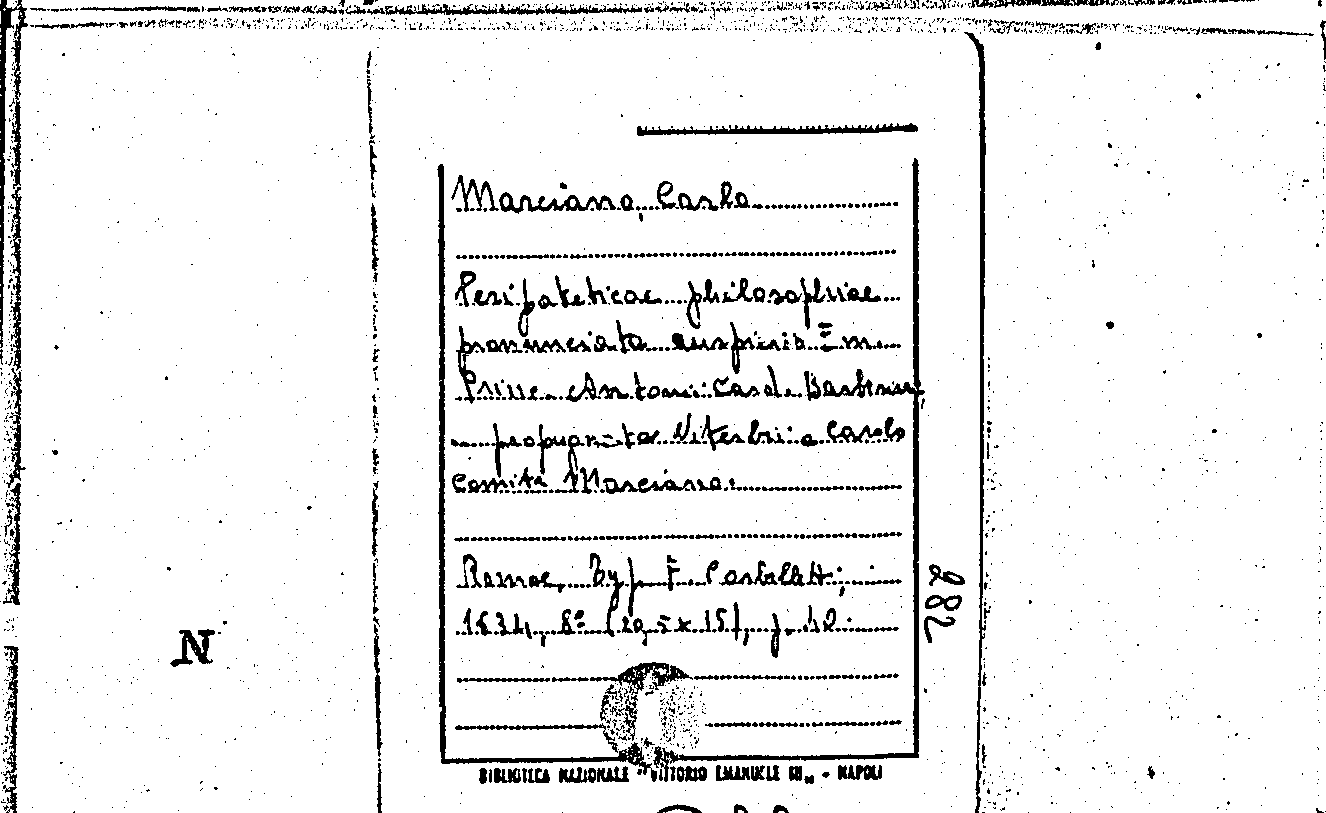 Marciano, Carlo
Peripateticae philosophiae
pronunciata auspiciis Em.
Princ. Antonii Card. Barberini
... propugnata Viterbii a Carolo
comite Marciano.
Romae, Typ. F. Corbelletti,
1634, 8° (20,5 x 15), p. 42.
282
N
BIBLIOTECA NAZIONALE "VITTORIO EMANUELE III„ - NAPOLI